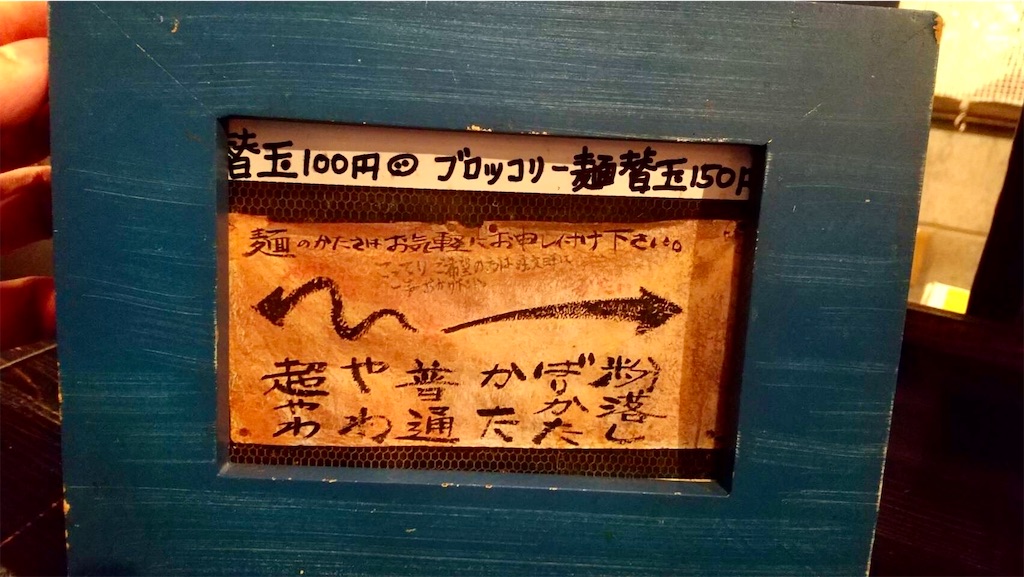 替玉100円 ブロッコリー麺替玉150円
麺のかたさはお気軽にお申し付け下さい。
こってりご希望の方は注文時に
超やわ やわ 普通 かた ばりかた 粉落し